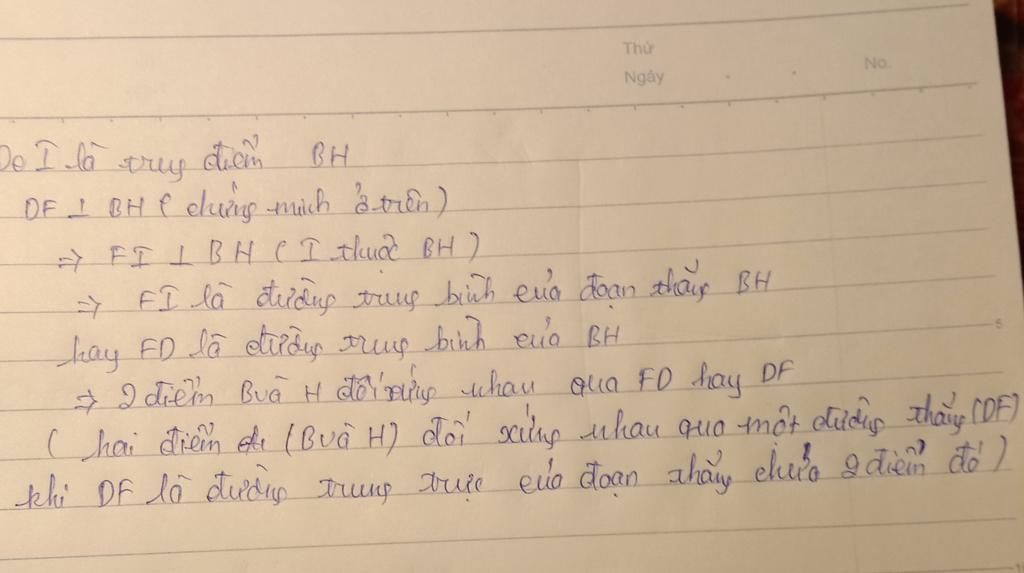 Thứ
Ngày
No.
Do I là trung điểm BH
DF ⊥ BH (chứng minh ở trên)
⇒ FI ⊥ BH (I thuộc BH)
⇒ FI là đường trung bình của đoạn thẳng BH
hay FD là đường trung bình của BH
⇒ 2 điểm B và H đối xứng nhau qua FD hay DF
(hai điểm (B và H) đối xứng nhau qua một đường thẳng (DF)
khi DF là đường trung trực của đoạn thẳng chứa 2 điểm đó)